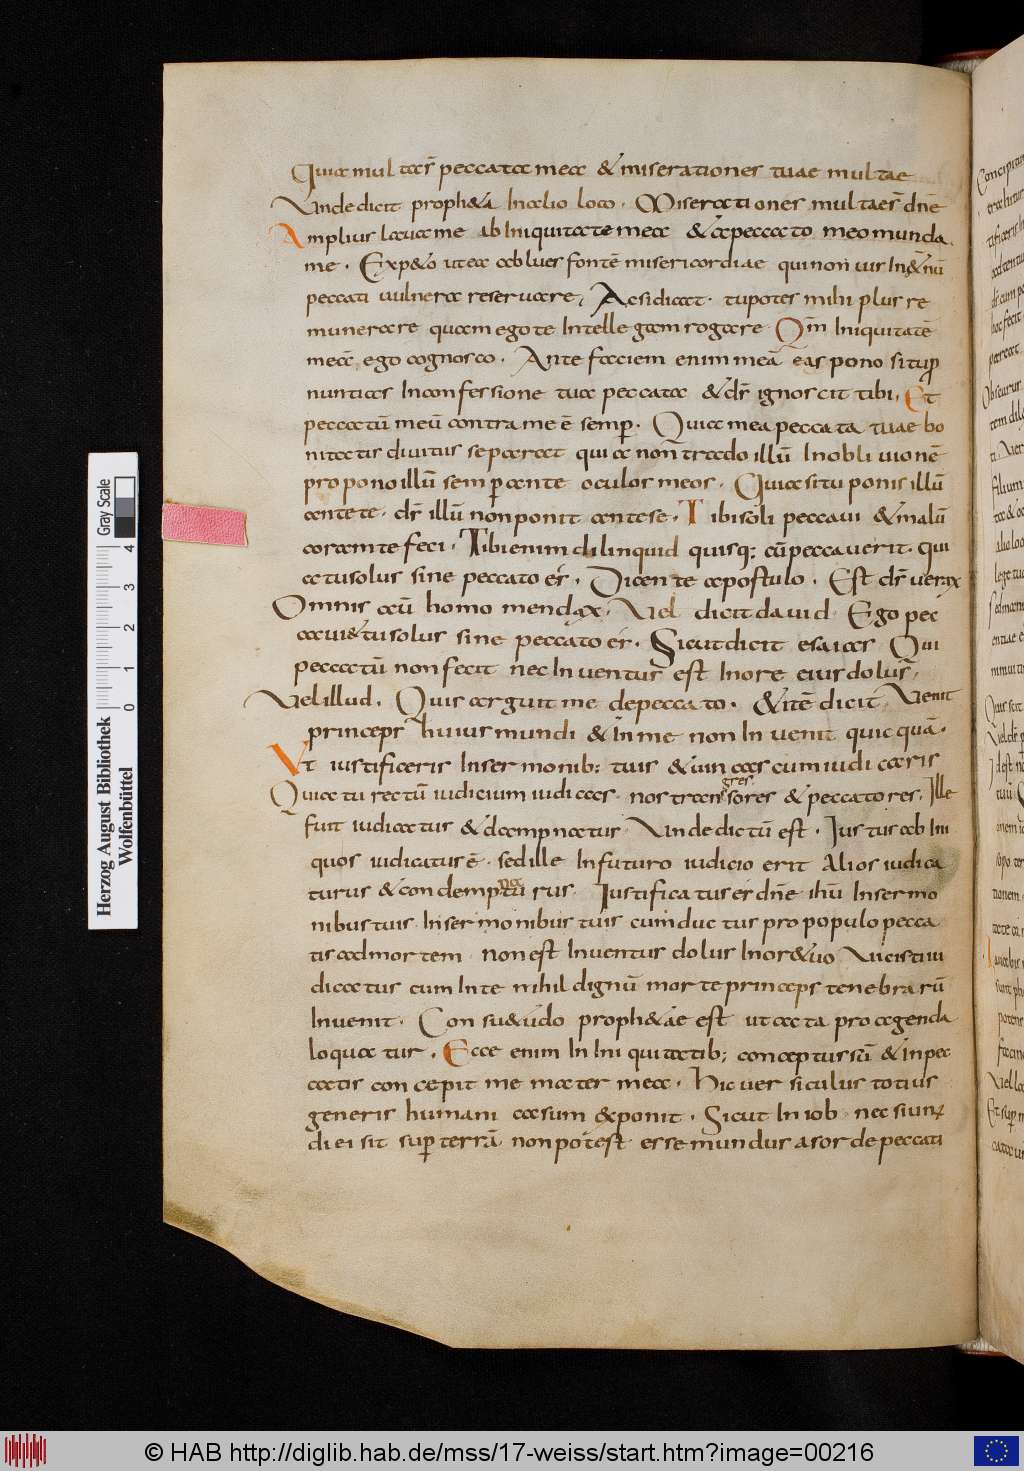 Quia mul taeˉs peccata mea & miserationes tuae multae
Unde dicit proph&a In alio loco. Miserationes multaeˉs dnē
Amplius Laua me ab Iniquitate mea & apeccato meo munda
me. Exp&o ut ea abluer fontē misericordiae qui non uis In&nū
peccati uulnera reseruare, Acsidicat. tu potes mihi plus re
munerare quam ego te Intellegam rogare Qm̄ Iniquitatē
meā ego cognosco. Ante faciem enim meā eas pono situ ꝓ
nuntias Inconfessione tua peccata & dr̄ ignoscit tibi, Et
peccatū meū contra me ē semꝑ. Quia mea peccata tuae bo
nitatis diuitus separat quia non trado illū Inobliuionē
propono illū semꝑ ante oculos meos. Quia situ ponis illū
ante te. dr̄ illū non ponit ante se. Tibi soli peccaui & malū
coram te feci. Tibi enim dilinquid quisq; cū peccauerit. qui
a tu solus sine peccato eś. Dicente apostulo. Est dr̄ uerax
Omnis aū homo mendax. Uel dicit dauid. Ego pec
caui & tu solus sine peccato eś. Sicut dicit esaias Qui
peccatū non fecit nec Inuentus est Inore eius dolus,
Uel illud. Quis arguit me depeccato. & itē dicit, Uenit
princeps huius mundi & Inme non Inuenit quicquā.
Ut iustificeris Insermonib; tuis & uincas cum iudicaris
Quia tu rectū iudicium iudicas. nos trans gres sores & peccatores, Ille
fuit iudicatus & dampnatus. Unde dictū est. Iustus ab Ini
quos iudicatus ē. sed ille Infuturo iudicio erit Alios iudica
turus & condempnaturus. Iustificatus eś dn̄e ih̄u Insermo
nibus tuis. Insermonibus tuis cum ductus pro populo pecca
tis ad mortem non est Inuentus dolus Inor& uo Uicisti iu
dicatus cum Inte nihil dignū morte princeps tenebrarū
Inuenit. Consu&udo proph&ae est ut acta pro agenda
loquatur. Ecce enim In Iniquitatib; conceptus sū & Inpec
catis concepit me mater mea. Hic uersiculus totius
generis humani casum exponit. Sicut In iob nec si un
diei sit suꝑ terrā non potest esse mundus a sorde peccati
Herzog August Bibliothek
Wolfenbüttel
Gray Scale
0 1 2 3 4
© HAB http://diglib.hab.de/mss/17-weiss/start.htm?image=00216